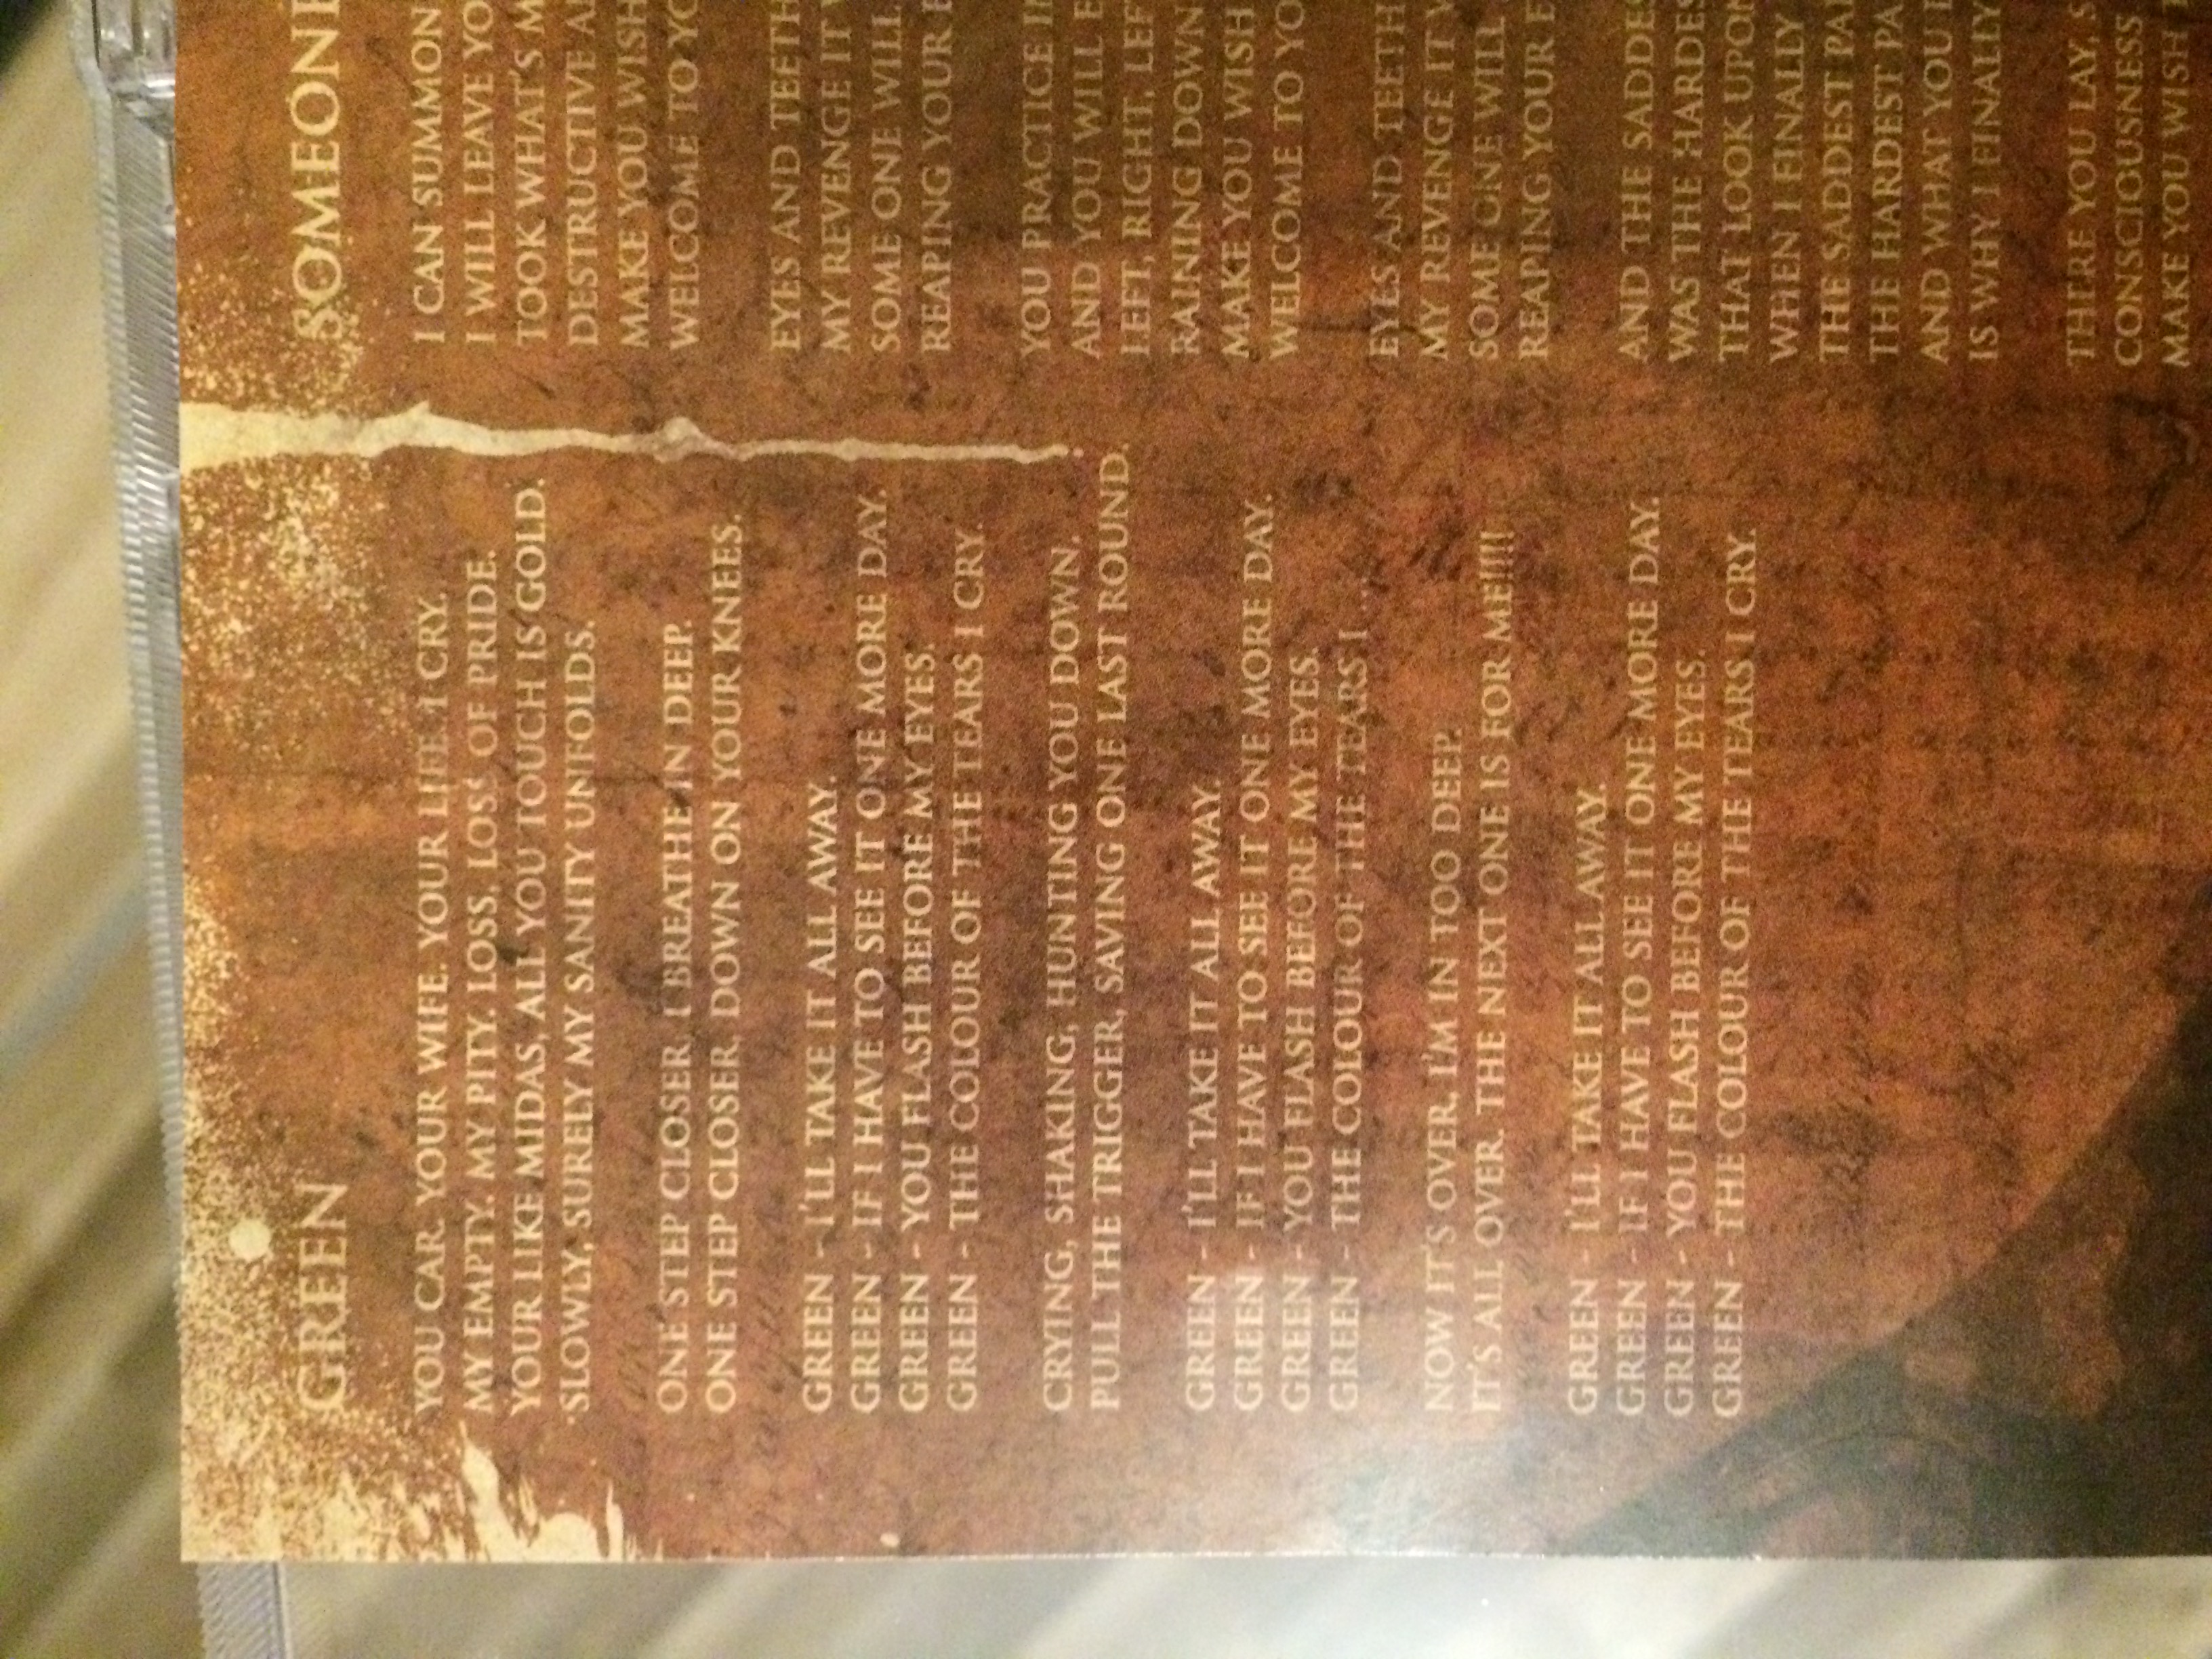 GREEN
YOU CAR. YOUR WIFE. YOUR LIFE I CRY.
MY EMPTY. MY PITY. LOSS. LOSS OF PRIDE.
YOUR LIKE MIDAS, ALL YOU TOUCH IS GOLD.
SLOWLY, SURELY MY SANITY UNFOLDS.
ONE STEP CLOSER. I BREATHE IN DEEP.
ONE STEP CLOSER, DOWN ON YOUR KNEES.
GREEN - I'LL TAKE IT ALL AWAY.
GREEN - IF I HAVE TO SEE IT ONE MORE DAY.
GREEN - YOU FLASH BEFORE MY EYES.
GREEN - THE COLOUR OF THE TEARS I CRY.
CRYING, SHAKING, HUNTING YOU DOWN.
PULL THE TRIGGER, SAVING ONE LAST ROUND.
GREEN - I'LL TAKE IT ALL AWAY.
GREEN - IF I HAVE TO SEE IT ONE MORE DAY.
GREEN - YOU FLASH BEFORE MY EYES.
GREEN - THE COLOUR OF THE TEARS I....
NOW IT'S OVER, I'M IN TOO DEEP.
IT'S ALL OVER. THE NEXT ONE IS FOR ME!!!!
GREEN - I'LL TAKE IT ALL AWAY.
GREEN - IF I HAVE TO SEE IT ONE MORE DAY.
GREEN - YOU FLASH BEFORE MY EYES.
GREEN - THE COLOUR OF THE TEARS I CRY.
SOMEONE
I CAN SUMMON
I WILL LEAVE
TOOK WHAT'S
DESTRUCTIVE
MAKE YOU WISH
WELCOME TO
EYES AND TEETH
MY REVENGE IT
SOME ONE WILL
REAPING YOUR
YOU PRACTICE
AND YOU WILL
LEFT, RIGHT,
RAINING DOWN
MAKE YOU WISH
WELCOME TO
EYES AND TEETH
MY REVENGE IT
SOME ONE WILL
REAPING YOUR
AND THE
WAS THE
THAT LOOK
WHEN I FINALLY
THE SADDEST
THE HARDEST
AND WHAT YOU
IS WHY I FINALLY
THERE YOU LAY,
CONSCIOUSNESS
MAKE YOU WISH